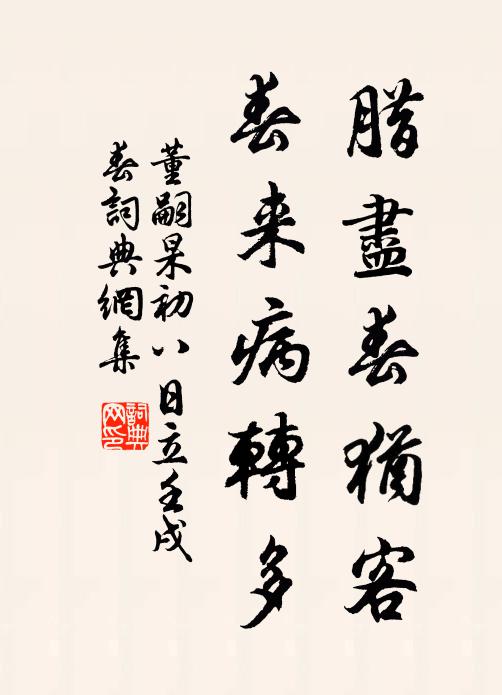 腊盡春猶客
春来病轉多
董嗣杲初八日立壬戌
春詞典網集
詞典网印